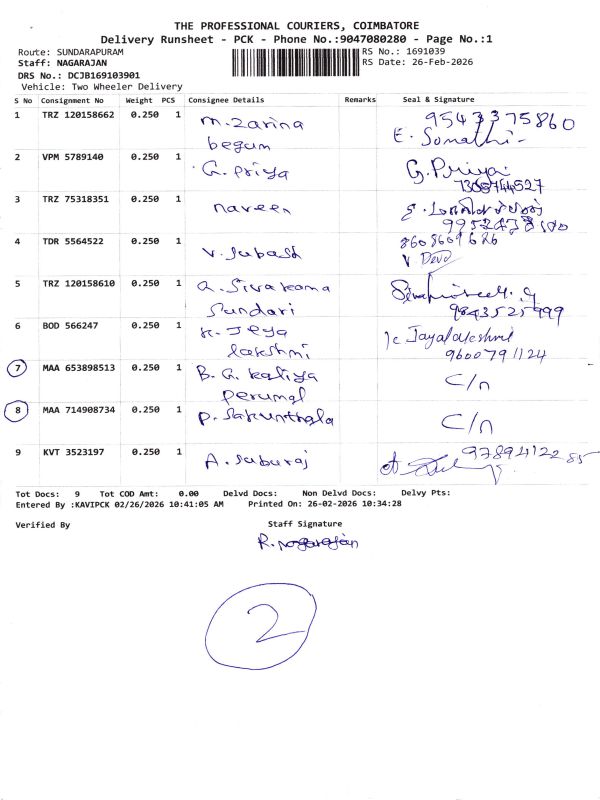 THE PROFESSIONAL COURIERS, COIMBATORE
Delivery Runsheet - PCK - Phone No.:9047080280 - Page No.:1
Route: SUNDARAPURAM
RS No.: 1691039
Staff: NAGARAJAN
RS Date: 26-Feb-2026
DRS No.: DCJB169103901
Vehicle: Two Wheeler Delivery
S No Consignment No Weight PCS Consignee Details Remarks Seal & Signature
1 TRZ 120158662 0.250 1 M. Zarina 9543375860
begum E. Somathi
2 VPM 5789140 0.250 1 G. Priya G. Priya
3 TRZ 75318351 0.250 1 naveen
4 TDR 5564522 0.250 1 V. Subash 8608601626
V. Devo
5 TRZ 120158610 0.250 1 A. Sivakama
Sundari 9843525999
6 BOD 566247 0.250 1 K. Jeya K Jayalakshmi
lakshmi 9600791124
7 MAA 653898513 0.250 1 B. G. Kaliya C/n
perumal
8 MAA 714908734 0.250 1 P. Sakunthala C/n
9 KVT 3523197 0.250 1 A. Suburaj 9789412285
Tot Docs: 9 Tot COD Amt: 0.00 Delvd Docs: Non Delvd Docs: Delvy Pts:
Entered By :KAVIPCK 02/26/2026 10:41:05 AM Printed On: 26-02-2026 10:34:28
Verified By Staff Signature
R. nagarajan
2